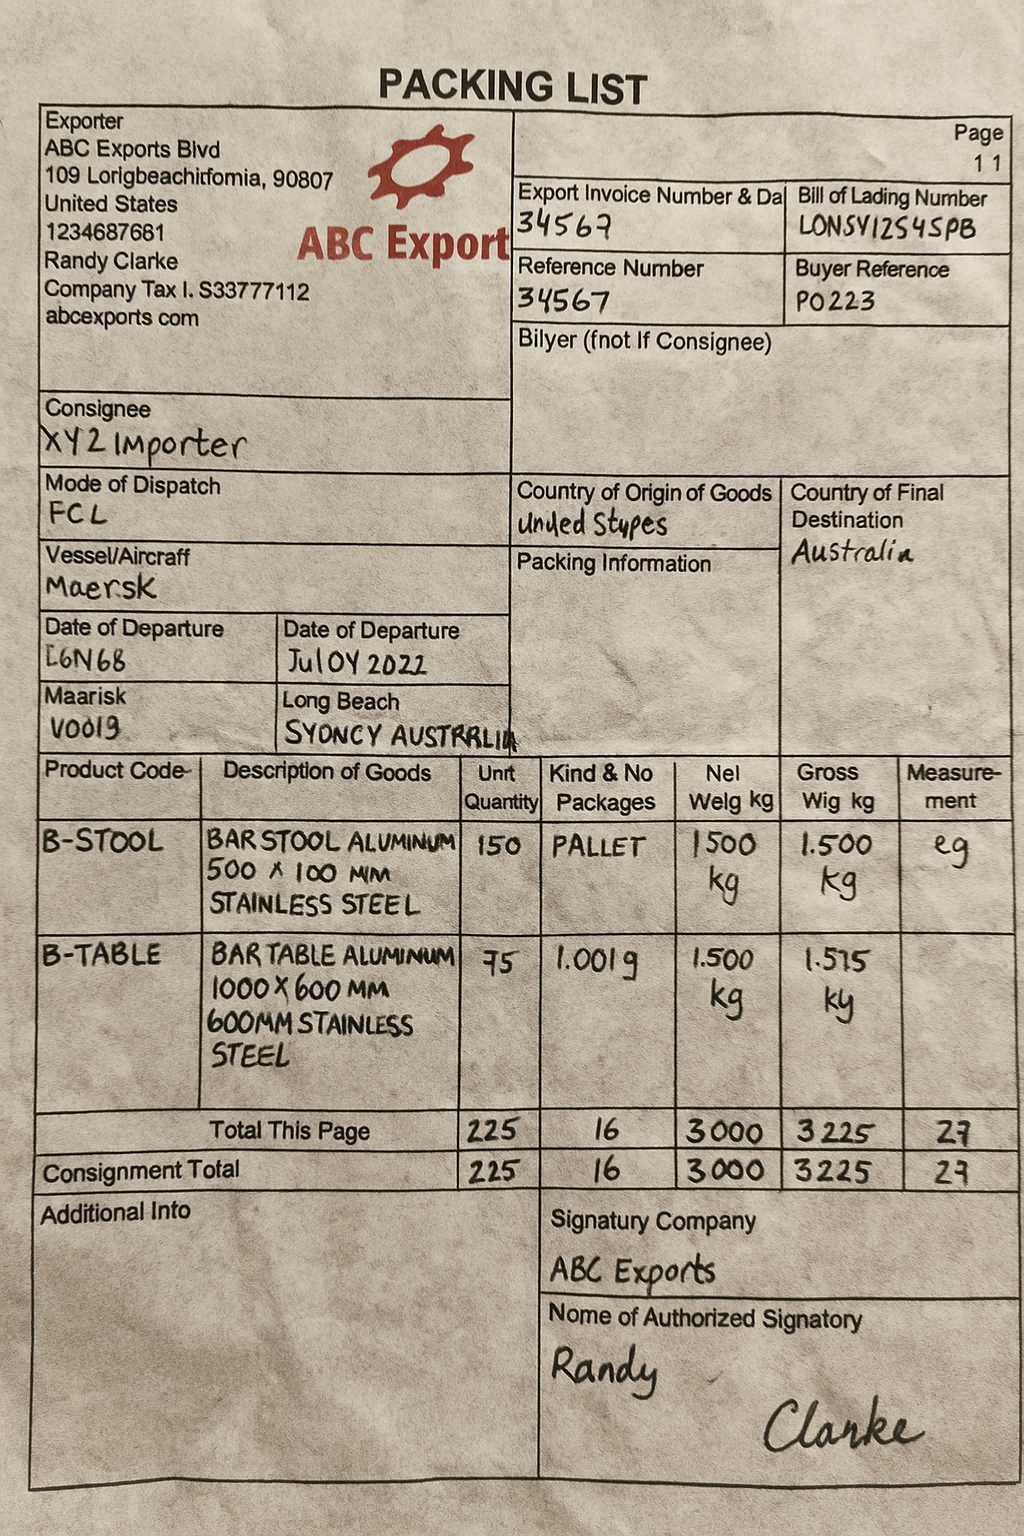 PACKING LIST
Exporter
ABC Exports Blvd
109 Lorigbeachirfomia, 90807
United States
1234687681
Randy Clarke
Company Tax I. S33777112
abcexports com
ABC Export
Page
1 1
Export Invoice Number & Da
34567
Bill of Lading Number
LONSY12S4SPB
Reference Number
34567
Buyer Reference
PO223
Bilyer (fnot If Consignee)
Consignee
XY2 Importer
Mode of Dispatch
FCL
Country of Origin of Goods
Unded Stypes
Country of Final
Destination
Australia
Vessel/Aircraff
Maersk
Packing Information
Date of Departure
Date of Departure
Jul 0Y 2022
Maarisk
V0019
Long Beach
SYDNCY AUSTRRLIA
Product Code
Description of Goods
Unit
Quantity
Kind & No
Packages
Nel
Welg kg
Gross
Wig kg
Measure-
ment
B-STOOL
BAR STOOL ALUMINUM
500 X 100 MM
STAINLESS STEEL
150
PALLET
1500
kg
1.500
kg
eg
B-TABLE
BAR TABLE ALUMINUM
1000 X 600 MM
600MM STAINLESS
STEEL
75
1.001g
1.500
kg
1.575
ky
Total This Page 225 16 3000 3225 27
Consignment Total 225 16 3000 3225 27
Additional Into
Signatury Company
ABC Exports
Nome of Authorized Signatory
Randy
Clarke